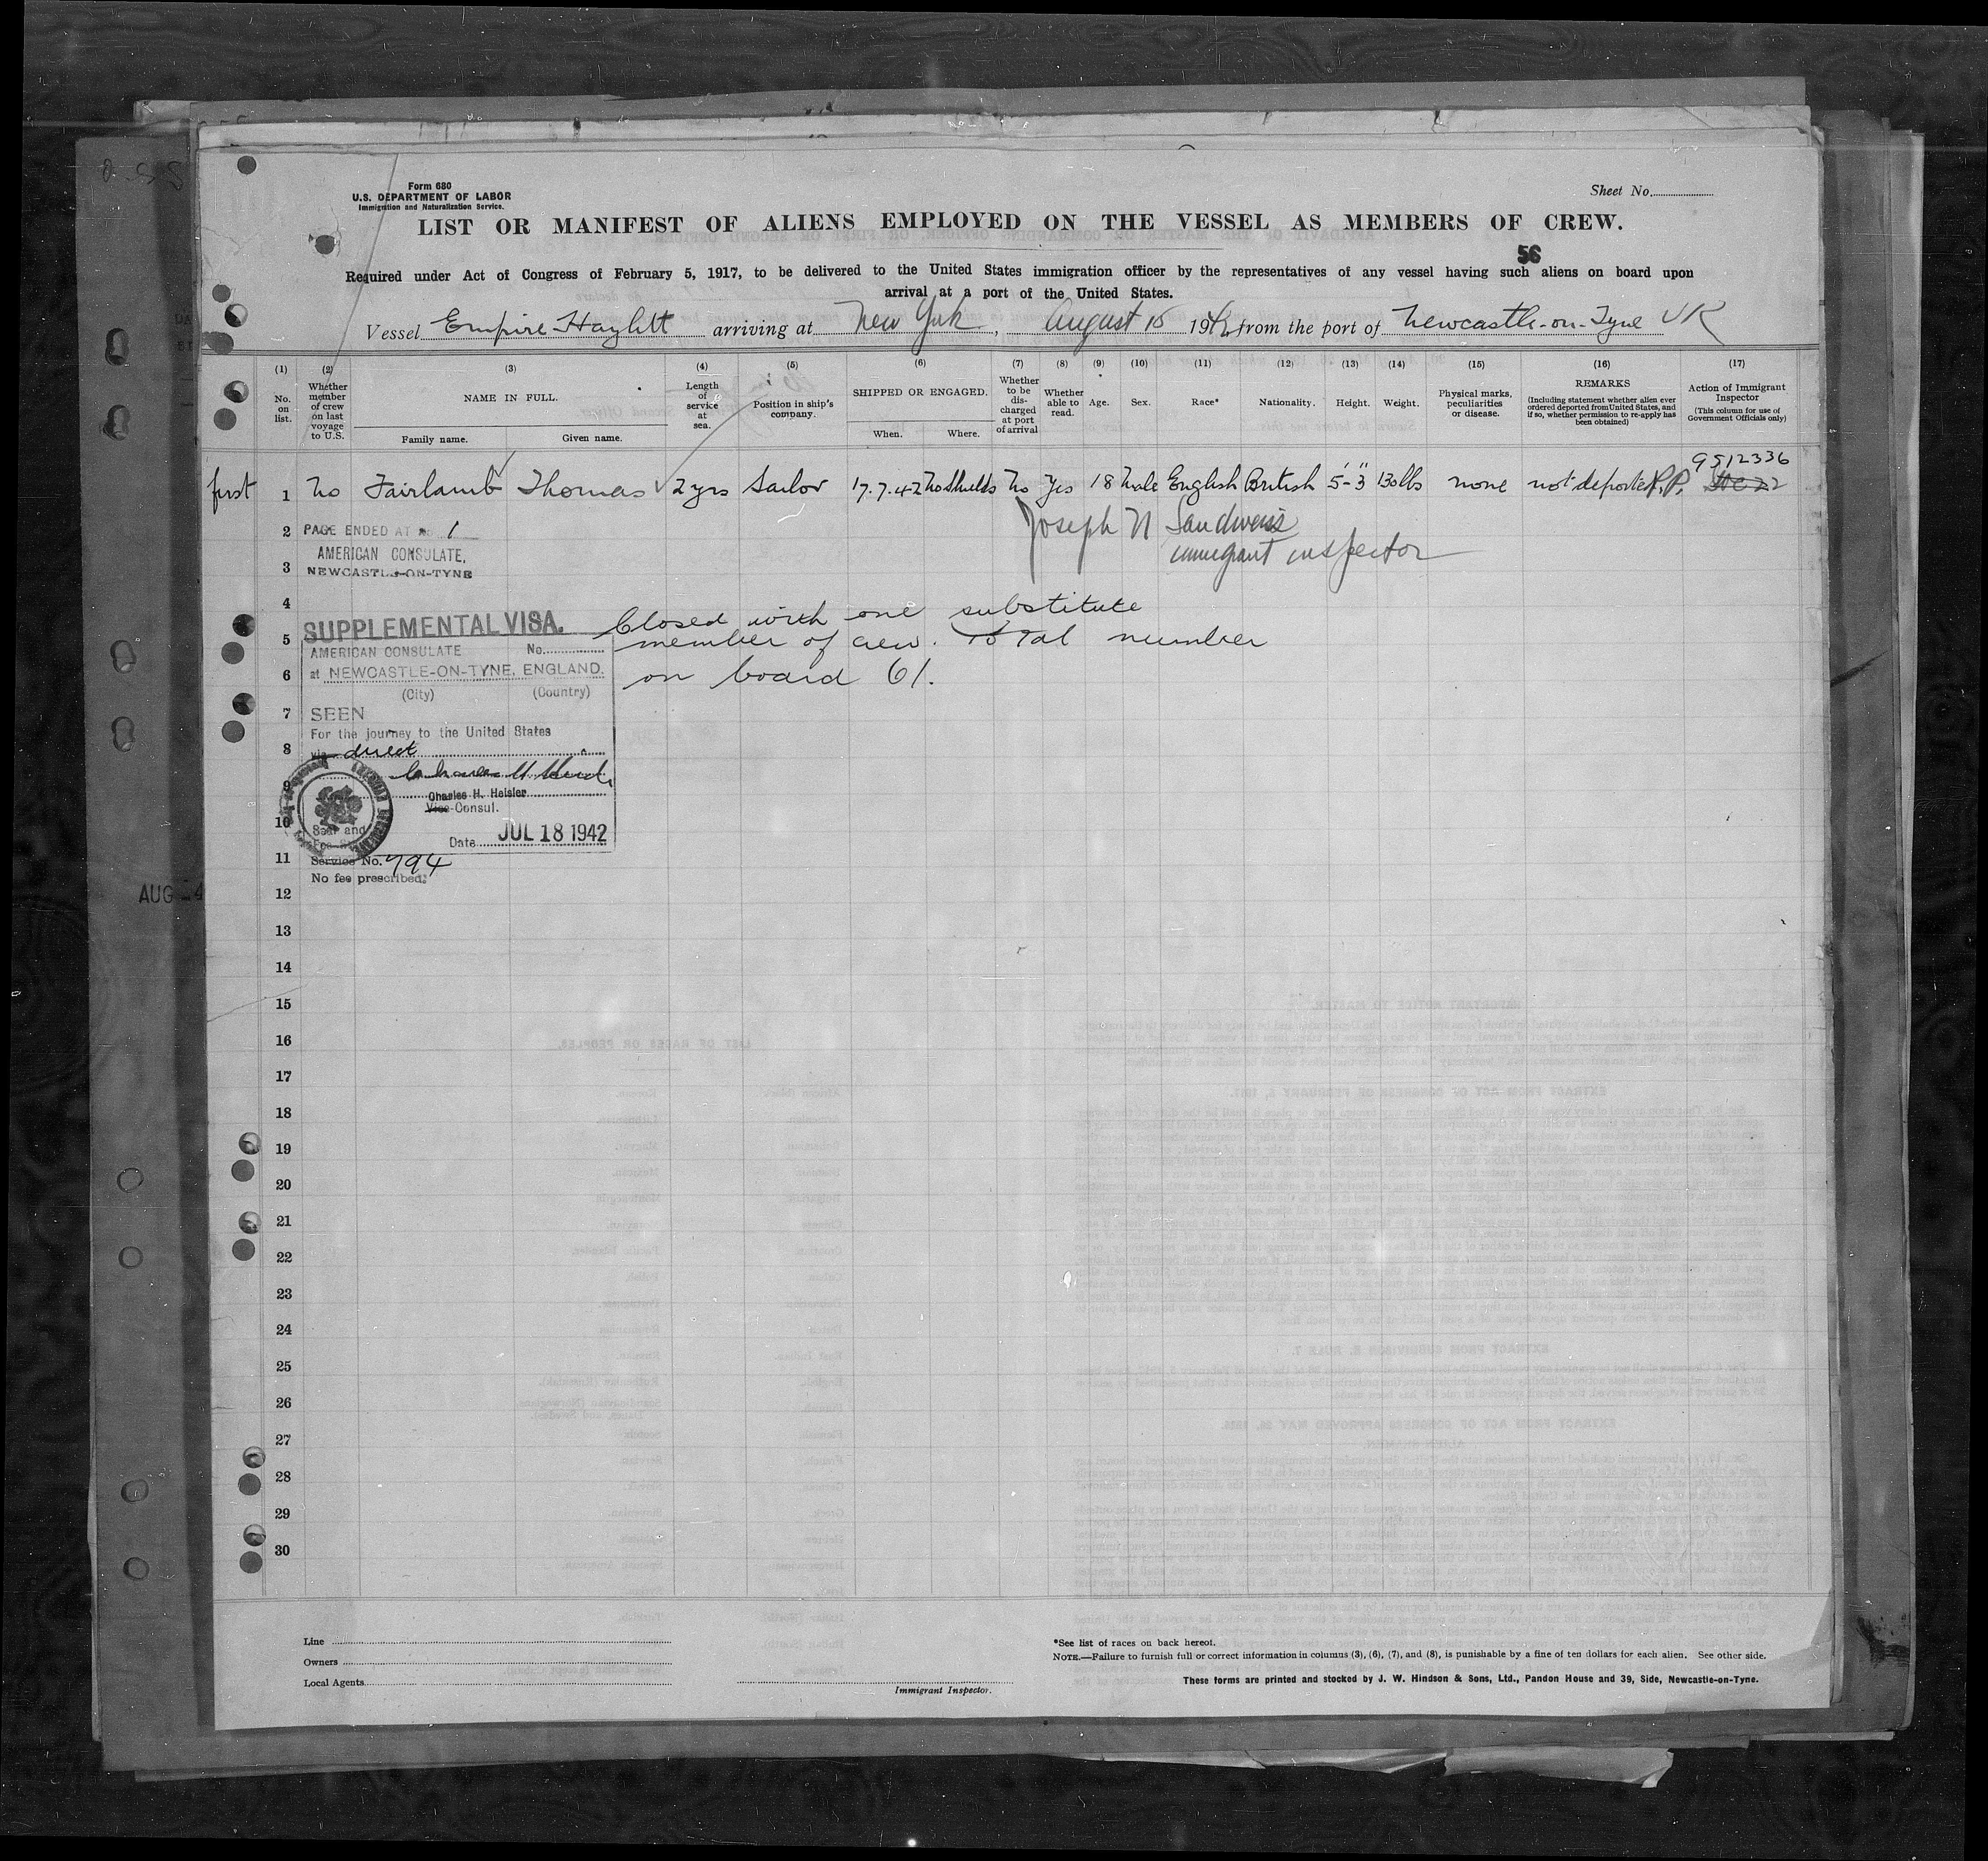 Form 680
U.S. DEPARTMENT OF LABOR
Immigration and Naturalization Service.
Sheet No.
LIST OR MANIFEST OF ALIENS EMPLOYED ON THE VESSEL AS MEMBERS OF CREW.
56
Required under Act of Congress of February 5, 1917, to be delivered to the United States immigration officer by the representatives of any vessel having such aliens on board upon
arrival at a port of the United States.
Vessel Empire Haylitt arriving at New York, August 15 1942, from the port of Newcastle-on-Tyne UK
(1) No. on list.
(2) Whether member of crew on last voyage to U.S.
(3) NAME IN FULL. Family name. Given name.
(4) Length of service at sea.
(5) Position in ship's company.
(6) SHIPPED OR ENGAGED. When. Where.
(7) Whether to be discharged at port of arrival
(8) Whether able to read.
(9) Age.
(10) Sex.
(11) Race*
(12) Nationality.
(13) Height.
(14) Weight.
(15) Physical marks, peculiarities or disease.
(16) REMARKS (Including statement whether alien ever ordered deported from United States, and if so, whether permission to re-apply has been obtained)
(17) Action of Immigrant Inspector (This column for use of Government Officials only)
9512336
first 1 No Fairlamb Thomas 2 yrs Sailor 17.7.42 No Shields No Yes 18 Male English British 5'-3" 130 lbs none not deported P.P.
Joseph N Sandweiss
immigrant inspector
2 PAGE ENDED AT No 1
AMERICAN CONSULATE,
3 NEWCASTLE-ON-TYNE
4
SUPPLEMENTAL VISA.
Closed with one substitute
5 AMERICAN CONSULATE No.
member of crew. Total number
6 at NEWCASTLE-ON-TYNE, ENGLAND.
on board 61.
(City) (Country)
7 SEEN
For the journey to the United States
8 via direct
9 Charles H. Heisler
Vice-Consul.
10 Seal and
Date JUL 18 1942
11 Service No. 794
No fee prescribed.
AUG 24
12
13
14
15
16
17
18
19
20
21
22
23
24
25
26
27
28
29
30
Line
Owners
Local Agents
Immigrant Inspector.
*See list of races on back hereof.
NOTE.—Failure to furnish full or correct information in columns (3), (6), (7), and (8), is punishable by a fine of ten dollars for each alien. See other side.
These forms are printed and stocked by J. W. Hindson & Sons, Ltd., Pandon House and 39, Side, Newcastle-on-Tyne.